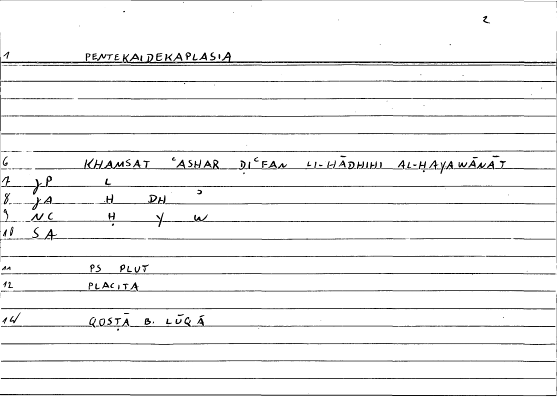 2
1 PENTEKAIDEKAPLASIA
6 KHAMSAT ʿASHAR ḌIʿFAN LI-HĀDHIHI AL-ḤAYAWĀNĀT
7 JP L
8 JA H DH ʾ
9 NC Ḥ Y W
10 SA
11 PS PLUT
12 PLACITA
14 QOSṬĀ B. LŪQĀ